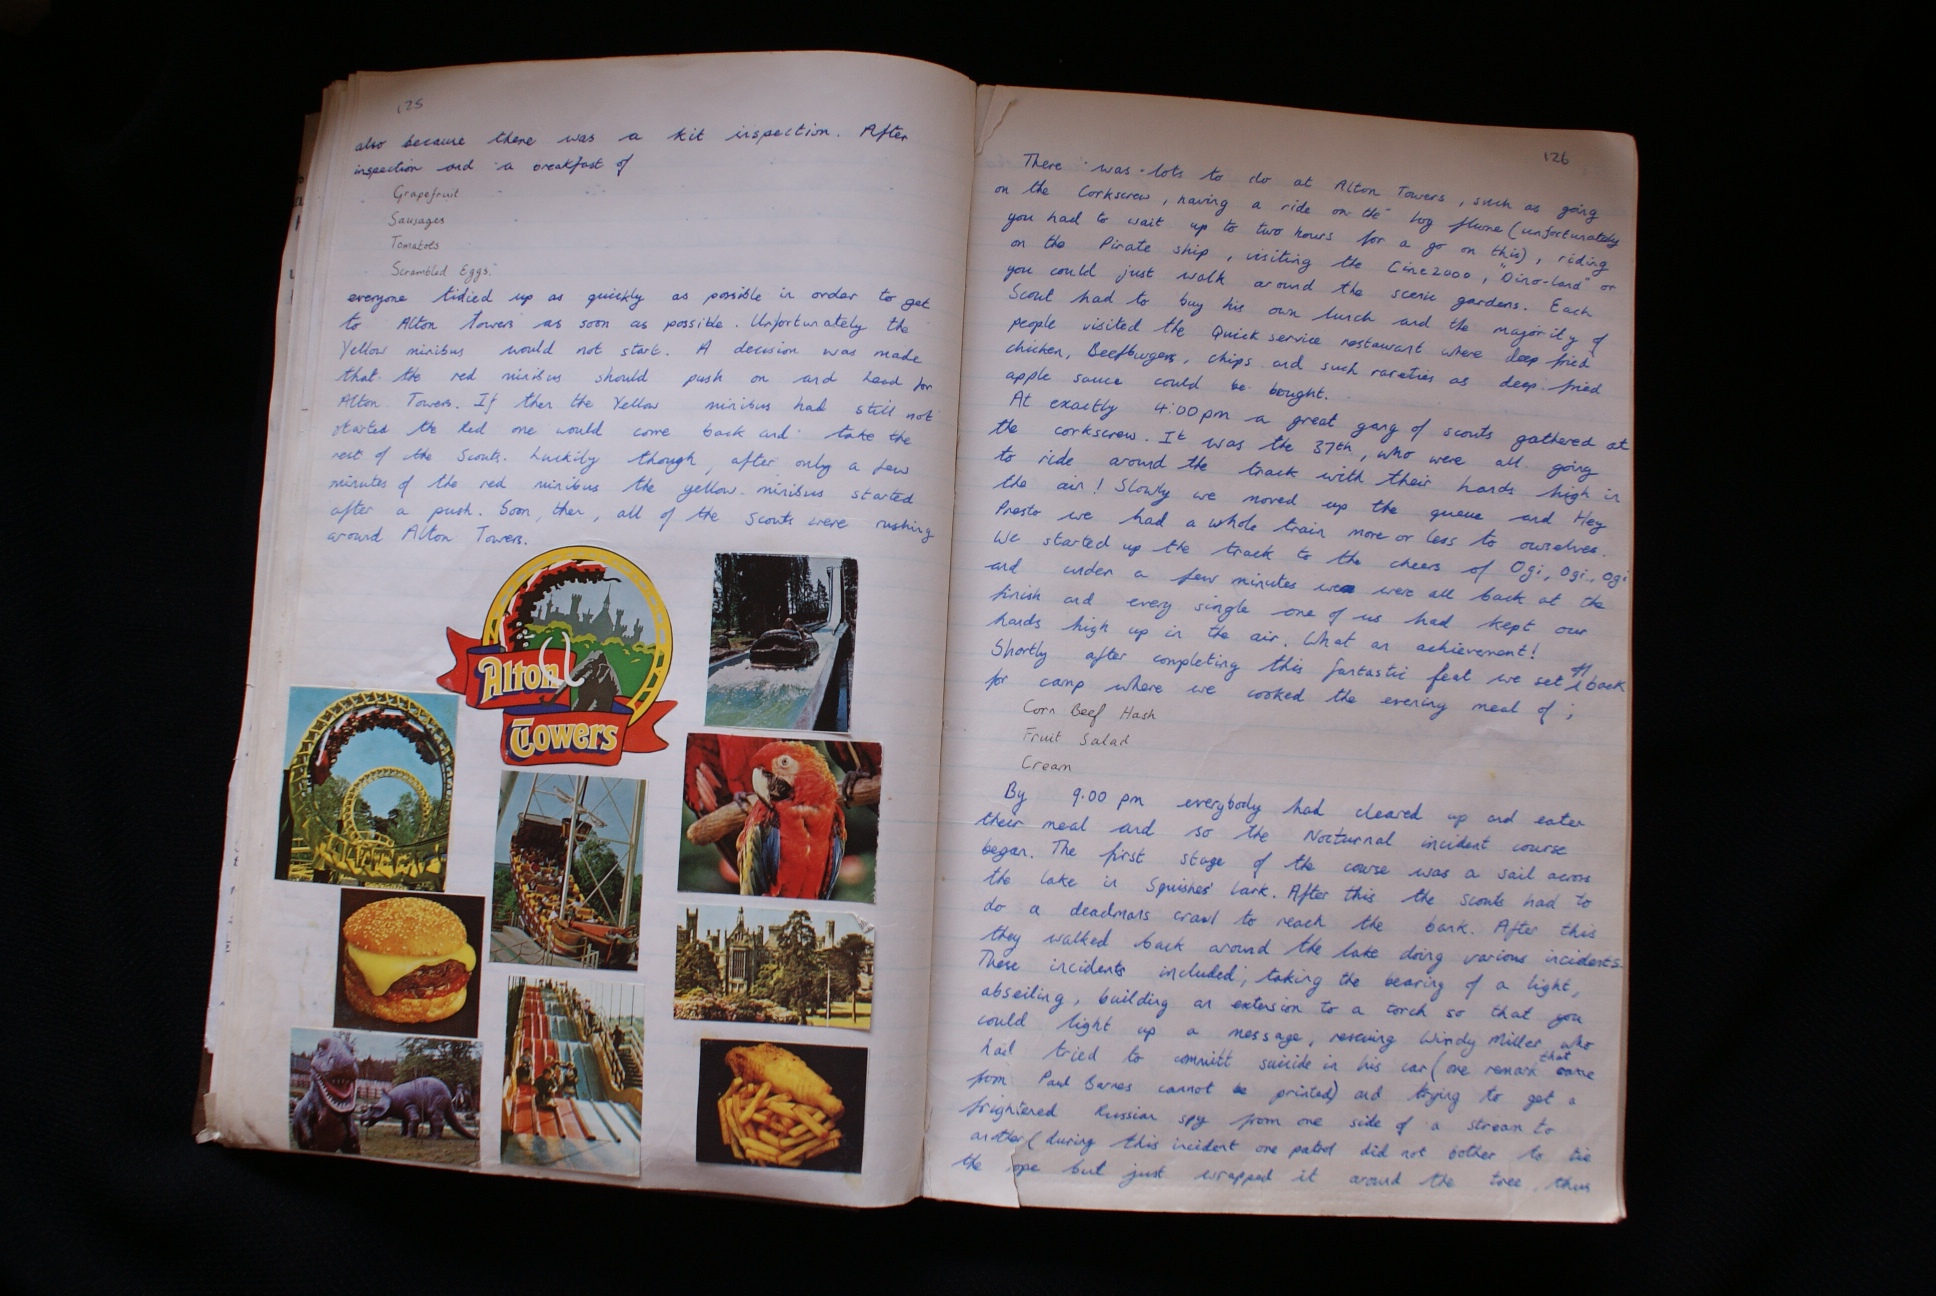 125
also because there was a kit inspection. After
inspection and a breakfast of
Grapefruit
Sausages
Tomatos
Scrambled Eggs.
everyone tidied up as quickly as possible in order to get
to Alton Towers as soon as possible. Unfortunately the
Yellow minibus would not start. A decision was made
that the red minibus should push on and head for
Alton Towers. If then the Yellow minibus had still not
started the Red one would come back and take the
rest of the Scouts. Luckily though, after only a few
minutes of the red minibus the yellow minibus started
after a push. Soon, then, all of the Scouts were rushing
around Alton Towers.
Alton
Towers
126
There was lots to do at Alton Towers, such as going
on the Corkscrew, having a ride on the log flume (unfortunately
you had to wait up to two hours for a go on this), riding
on the Pirate ship, visiting the Cine2000, "Dino-land" or
you could just walk around the scenic gardens. Each
Scout had to buy his own lunch and the majority of
people visited the Quick service restaurant where deep fried
chicken, Beefburgers, chips and such rareties as deep fried
apple sauce could be bought.
At exactly 4:00pm a great gang of scouts gathered at
the corkscrew. It was the 37th, who were all going
to ride around the track with their hands high in
the air! Slowly we moved up the queue and Hey
Presto we had a whole train more or less to ourselves.
We started up the track to the cheers of Ogi, Ogi, Ogi
and under a few minutes we were all back at the
finish and every single one of us had kept our
hands high up in the air. What an achievement!
Shortly after completing this fantastic feat we set off back
for camp where we cooked the evening meal of;
Corn Beef Hash
Fruit Salad
Cream
By 9.00 pm everybody had cleared up and eaten
their meal and so the Nocturnal incident course
began. The first stage of the course was a sail across
the lake in Squishes' Lark. After this the scouts had to
do a deadmans crawl to reach the bank. After this
they walked back around the lake doing various incidents.
These incidents included; taking the bearing of a light,
abseiling, building an extension to a torch so that you
could light up a message, rescuing Windy Miller who
had tried to committ suicide in his car (one remark that came
from Paul Barnes cannot be printed) and trying to get a
frightened Russian spy from one side of a stream to
another (during this incident one patrol did not bother to tie
the rope but just wrapped it around the tree, thus